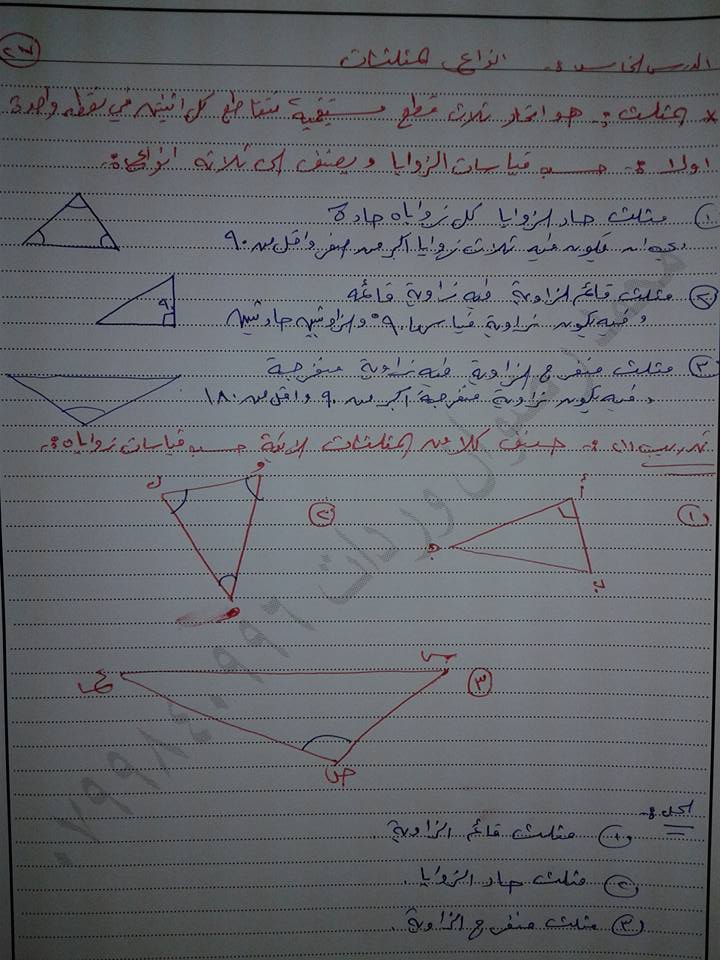 الدرس الخامس :- انواع المثلثات
٢٧
* المثلث : هو اتحاد ثلاث قطع مستقيمة تتقاطع كل اثنين في نقطه واحدة
اولا :- حسب قياسات الزوايا ويصنف الى ثلاثه انواع :-
١ مثلث حاد الزوايا كل زواياه حادة
فيكون فيه ثلاث زوايا اكبر من صفر واقل من ٩٠
٢ مثلث قائم الزاوية فيه زاوية قائمه
وفيه يكون زاوية قياسها ٩٠° والزاويتين حادتين
٩٠
٣ مثلث منفرج الزاوية فيه زاوية منفرجة
وفيه يكون زاوية منفرجة اكبر من ٩٠ واقل من ١٨٠
تدريب (١) :- صنف كلا من المثلثات الاتية حسب قياسات زواياه :-
١ أ ب جـ
٢ و ل هـ
٣ س ع ص
الحل :-
١ مثلث قائم الزاوية .
٢ مثلث حاد الزوايا .
٣ مثلث منفرج الزاوية .
وردات ٠٧٩٩٨٤٠٩٩٦